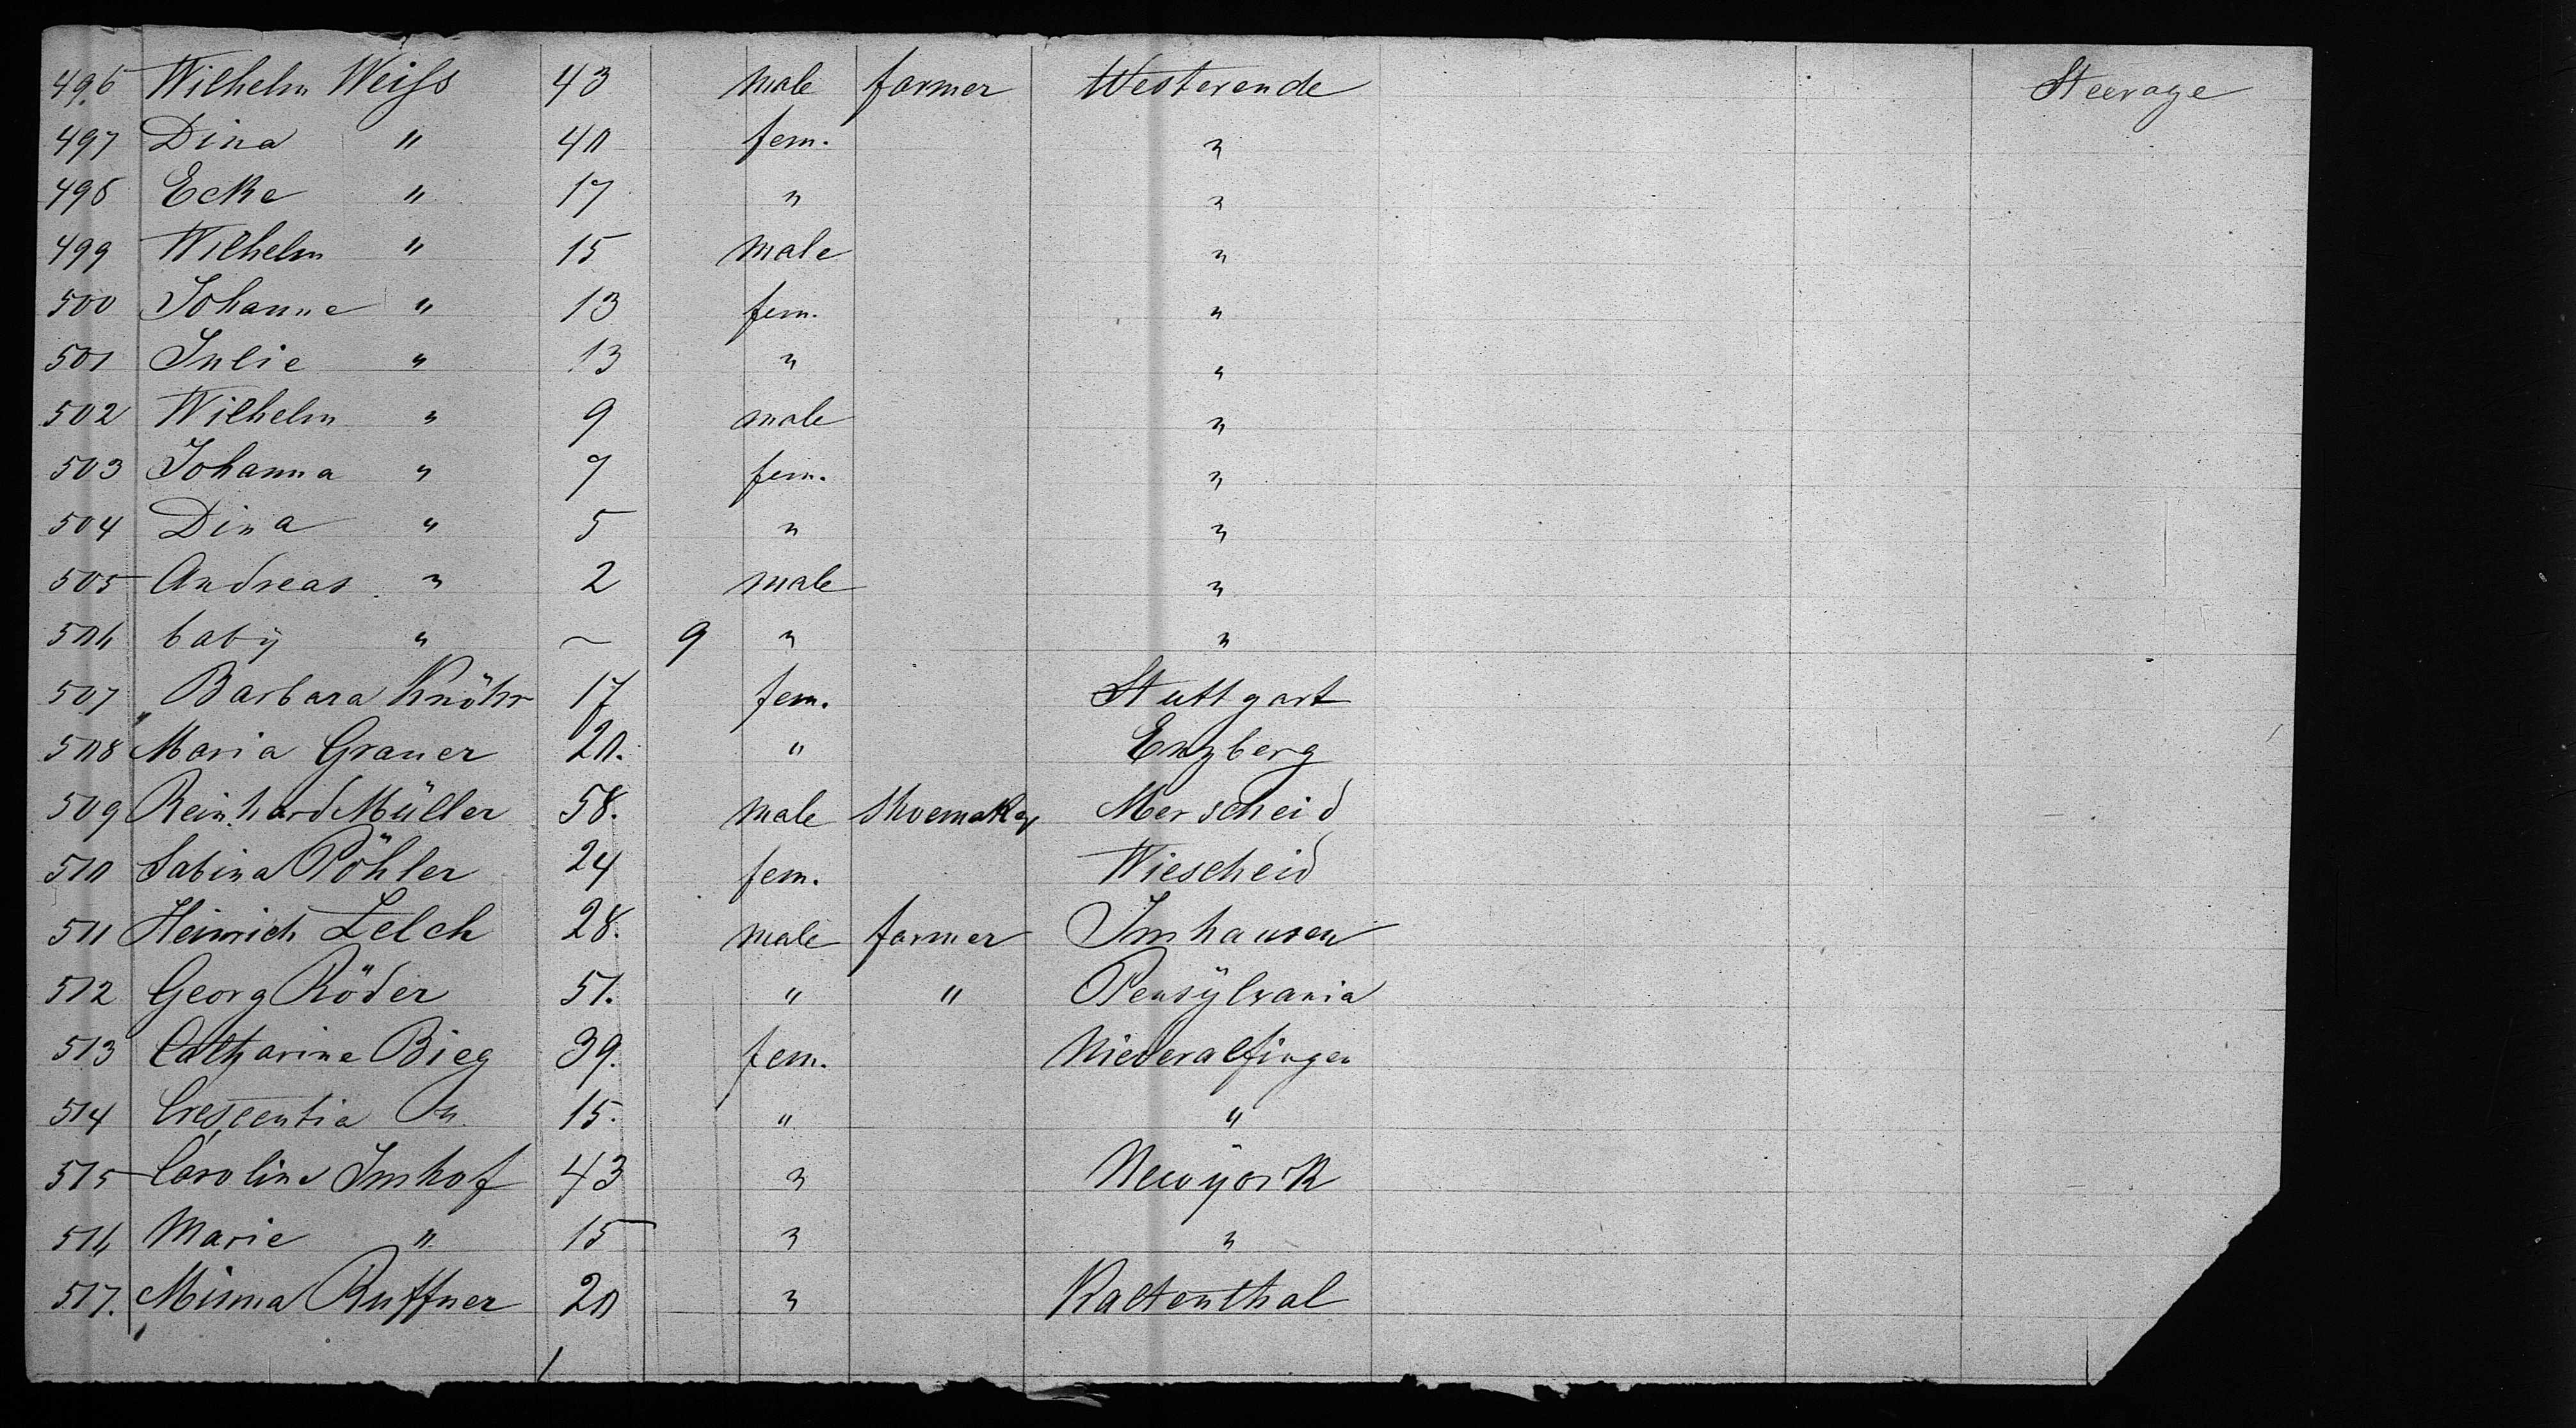 496 Wilhelm Weiss 43 male farmer Westerende Steerage
497 Dina " 40 fem. "
498 Ecke " 17 " "
499 Wilhelm " 15 male "
500 Johanne " 13 fem. "
501 Julie " 13 " "
502 Wilhelm " 9 male "
503 Johanna " 7 fem. "
504 Dina " 5 " "
505 Andreas " 2 male "
506 baby " ~ 9 " "
507 Barbara Knöhr 17 fem. Stuttgart
508 Maria Grauer 20. " Enzberg
509 Reinhard Müller 58. male Shoemaker Merscheid
510 Sabina Pöhler 24 fem. Wiescheid
511 Heinrich Lelch 28. male farmer Imhausen
512 Georg Röder 51. " " Pensÿlvania
513 Catharine Bieg 39. fem. Niederalfingen
514 Crescentia " 15. " "
515 Caroline Imhof 43 " Newÿork
516 Marie " 15 " "
517. Minna Ruffner 20 " Kaltenthal